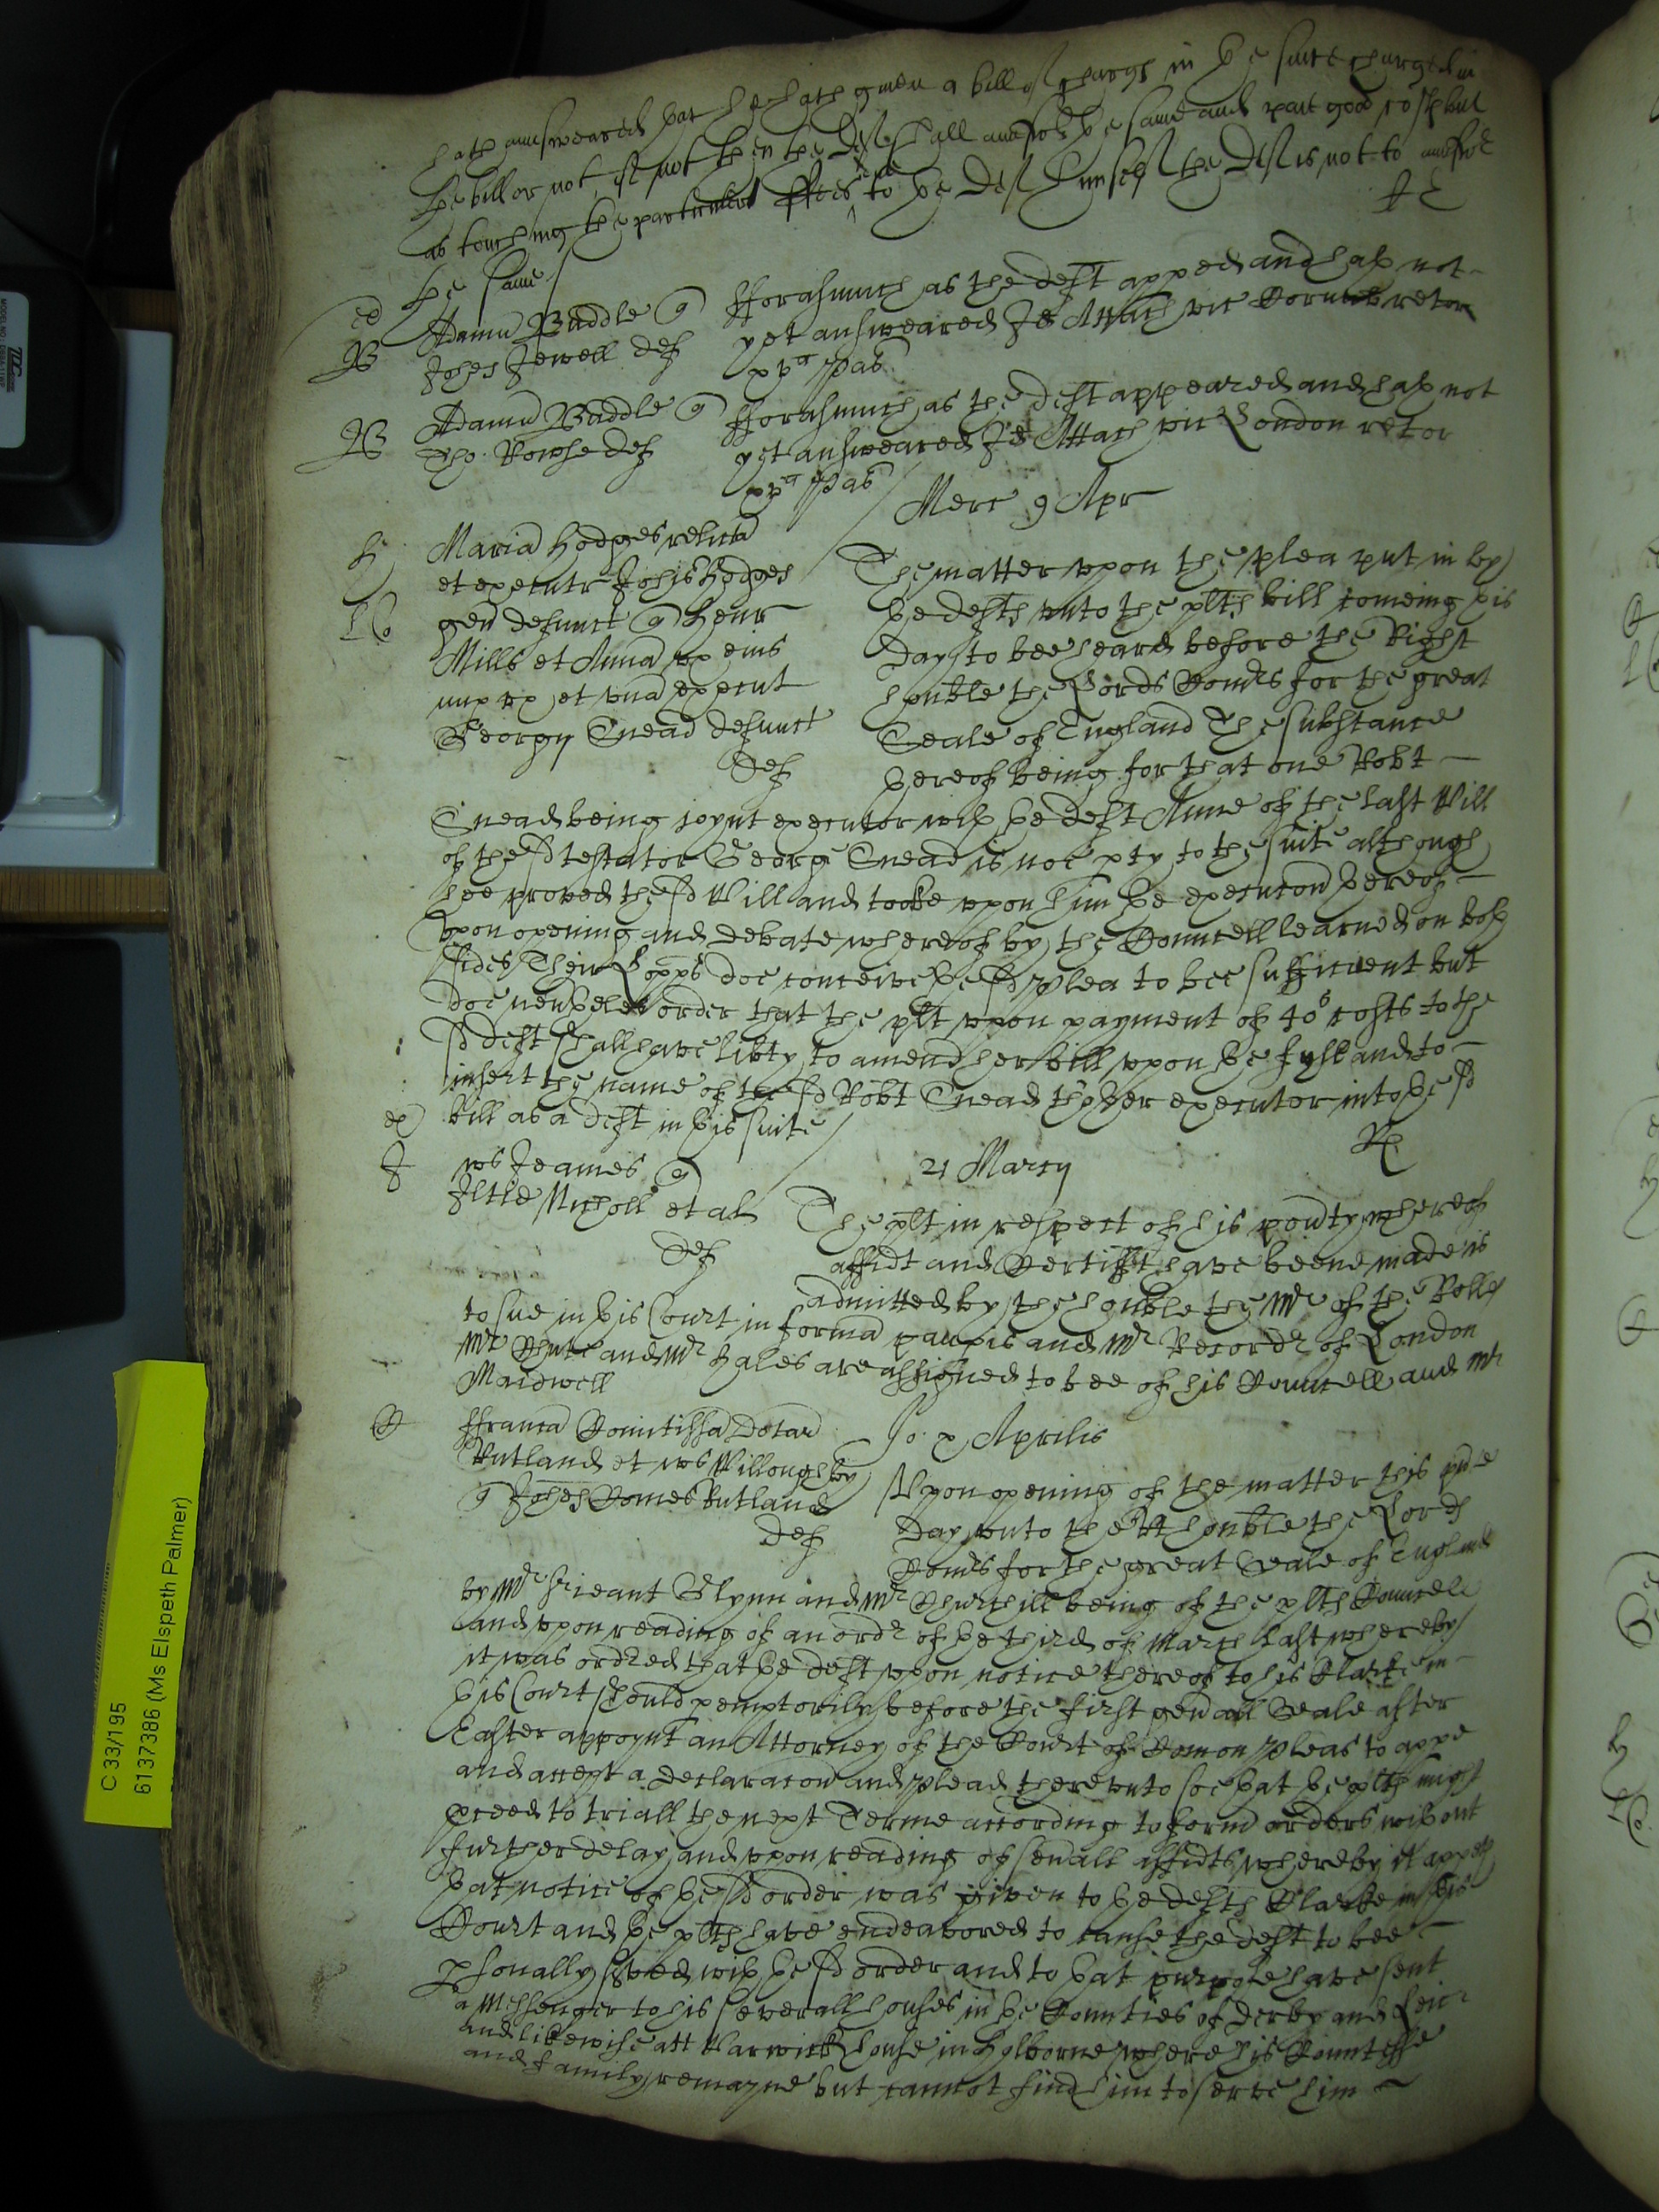 hath answeared that he hath given a bill of charges in the suite charged in
the bill or not, if not then the deft shall answere the same and pay good costs but
as touching the particuler ffees to the Deft himself the Deft is not to answere
the same
Adamus Buddle q
Johes Jewell def
fforasmuch as the deft apped and hath not
yet answeared Jd Attach vic Cornub retor
xva Pas
B
Adamus Buddle q
Tho. Rowse def
fforasmuch as the deft appeared and hath not
yet answeared Jd Attach vic London retor
xva Pas
B
Merc 9 Apr
Maria Hodges relicta
et executr Johis Hodges
gen defunct q Henr
Mills et Anna ux eius
nup ux et una execut
Georgij Snead defunct
def
h
The matter upon the plea put in by
the defts unto the plts bill comeing this
day to bee heard before the Right
honble the Lords Comrs for the great
Seale of England The substance
thereof being for that one Robt
Snead being joynt executor with the deft Anne of the last Will
of the sd testator George Snead is not pty to the suite although
hee proved the sd Will and tooke upon him the execucon thereof
Upon opening and debate whereof by the Councell learned on both
sides Their Lopps doe conceive the sd plea to bee sufficient but
doe nevtheles order that the plt upon payment of 40s costs to the
sd deft shall have libty to amend her bill upon the fyle and to
insert the name of the sd Robt Snead thother executor into the sd
bill as a deft in this suite
ex
Rl
J
Ws Jeames q
Nicholl et al
def
21 Martij
The plt in respect of his povty whereof
affidt and Certifft have beene made is
admitted by the honble the Mr of the Rolls
to sue in this Court in forma paupis and Mr Recordr of London
Mr Chute and Mr Hales are assigned to bee of his Councell and Mr
Maidwell
ffranca Comitissa Dotar
Rutland et ws Willoughby
q Johes Comes Rutland
def
R
Jo. x Aprilis
Upon opening of the matter this pnte
day unto the Rt honble the Lords
Comrs for the great Seale of England
by Mr Srieant Glynn and Mr Churchill being of the plts Councell
and upon reading of an ordr of the third of March last whereby
it was ordred that the deft upon notice thereof to his Clarke in
this Court should pemptorily before the first genall Seale after
Easter appoynt an Attorney of the Court of Comon Pleas to appe
and accept a declaracon and plead thereunto soe that the plts might
pceed to triall the next Terme according to form orders without
further delay and upon reading of sevall affidts whereby it appeth
that notice of the sd order was given to the defts Clarke in this
Court and the plts have endeavored to cause the deft to bee
psonally served with the sd order and to that purpose have sent
a Messenger to his severall houses in the Counties of Derby and Leicr
and likewise att Warwick house in Holborne where his Countesse
and family remayne but cannot find him to serve him
C 33/195
6137386 (Ms Elspeth Palmer)